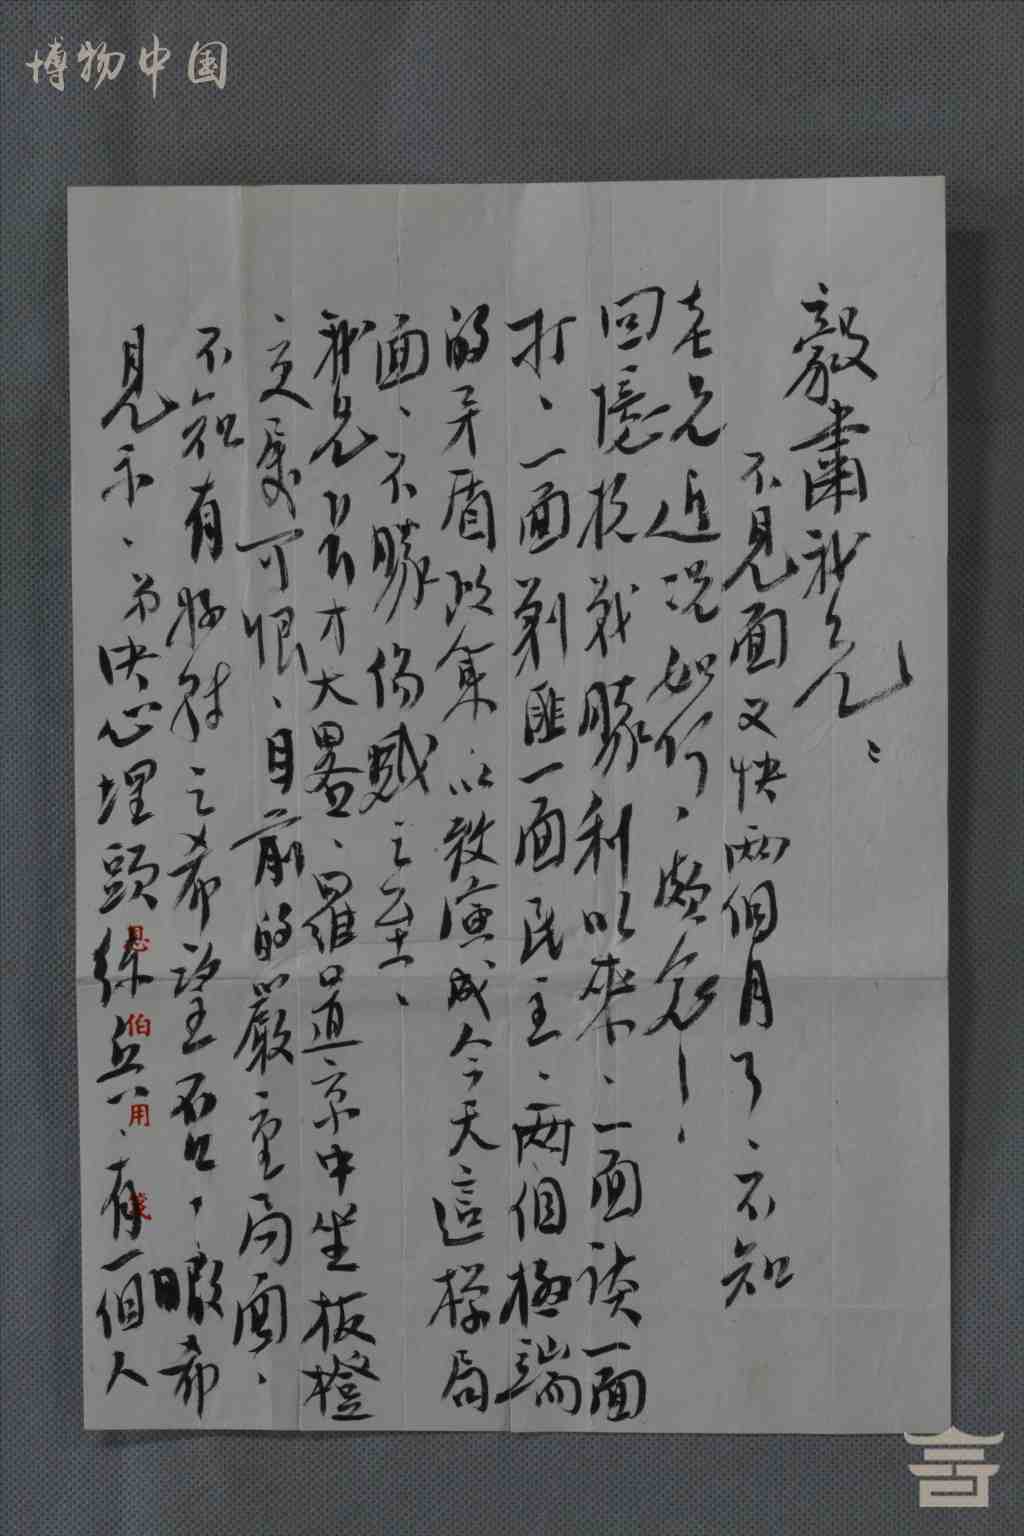 博物中国
毅肅我兄：
不見面又快兩個月了、不知
老兄近況如何、頗念！
回憶抗戰勝利以來、一面談一面
打、一面剿匪一面民主、兩個極端
的矛盾政策、以致演成今天這樣局
面、不勝傷感之至、
我兄具有才大畧、羅道京中坐板櫈
之冷可恨、目前的嚴重局面、
不知有好轉之希望否？、暇希
見示、弟決心埋頭練兵、有一個人
息伯用箋